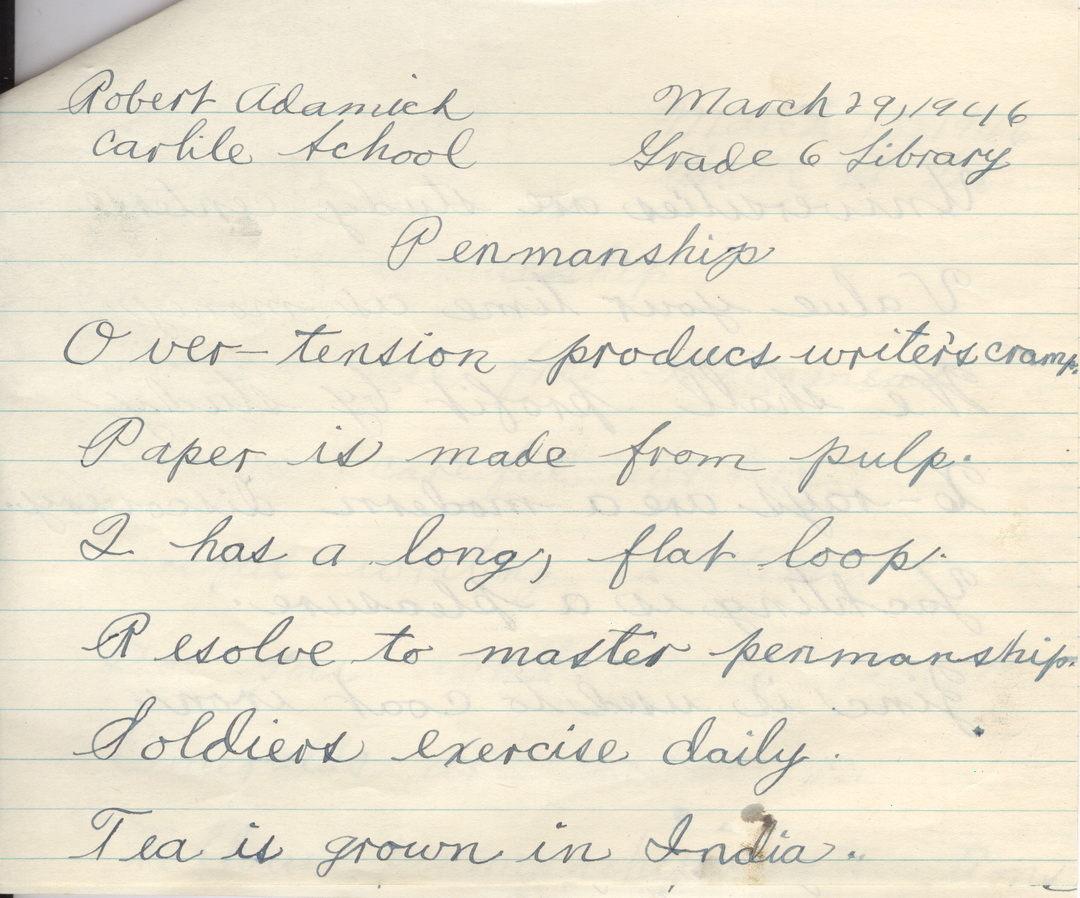 Robert Adamich March 29, 1946
Carlile School Grade 6 Library
Penmanship
Over-tension producs writer's cramp.
Paper is made from pulp.
Q has a long, flat loop.
Resolve to master penmanship.
Soldiers exercise daily.
Tea is grown in India.